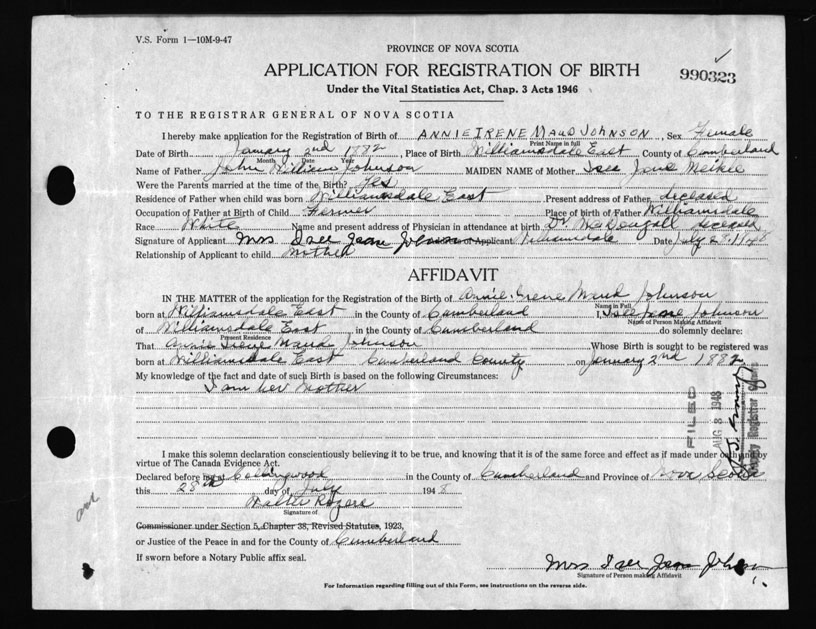 V.S. Form 1—10M-9-47
PROVINCE OF NOVA SCOTIA
APPLICATION FOR REGISTRATION OF BIRTH
990323
Under the Vital Statistics Act, Chap. 3 Acts 1946
TO THE REGISTRAR GENERAL OF NOVA SCOTIA
I hereby make application for the Registration of Birth of ANNIE IRENE MAUD JOHNSON, Sex Female
Print Name in full
Date of Birth January 2nd 1882, Place of Birth Williamsdale East County of Cumberland
Month Date Year
Name of Father John William Johnson MAIDEN NAME of Mother Meikle
Were the Parents married at the time of the Birth? Yes
Residence of Father when child was born Williamsdale East Present address of Father deceased
Occupation of Father at Birth of Child Farmer Place of birth of Father Williamsdale
Race White Name and present address of Physician in attendance at birth Dr. McDougall deceased
Signature of Applicant Mrs Jean Johnson of Applicant Williamsdale Date July 28
Relationship of Applicant to child Mother
AFFIDAVIT
IN THE MATTER of the application for the Registration of the Birth of Annie Irene Maud Johnson
Name in Full
born at Williamsdale East in the County of Cumberland I, Johnson
Name of Person Making Affidavit
of Williamsdale East, in the County of Cumberland do solemnly declare:
Present Residence
That Annie Irene Maud Johnson Whose Birth is sought to be registered was
born at Williamsdale East Cumberland County on January 2nd 1882
My knowledge of the fact and date of such Birth is based on the following Circumstances:
I am her mother
FILED
AUG 8 1948
Deputy Registrar
I make this solemn declaration conscientiously believing it to be true, and knowing that it is of the same force and effect as if made under oath and by
virtue of The Canada Evidence Act.
Declared before me at Collingwood in the County of Cumberland and Province of Nova Scotia
this 28th day of July 1948
Walter Rogers
Signature of
Commissioner under Section 5, Chapter 38, Revised Statutes, 1923,
or Justice of the Peace in and for the County of Cumberland
If sworn before a Notary Public affix seal.
Mrs Jean Johnson
Signature of Person making Affidavit
For Information regarding filling out of this Form, see instructions on the reverse side.